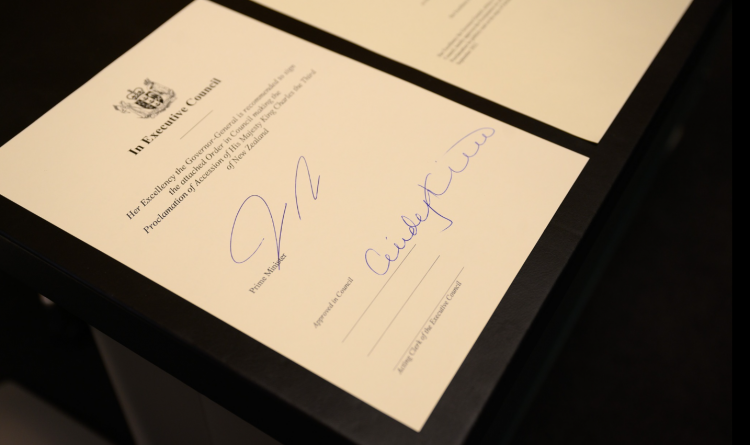 In Executive Council
Her Excellency the Governor-General is recommended to sign
the attached Order in Council making the
Proclamation of Accession of His Majesty King Charles the Third
of New Zealand
Prime Minister
Approved in Council
Acting Clerk of the Executive Council